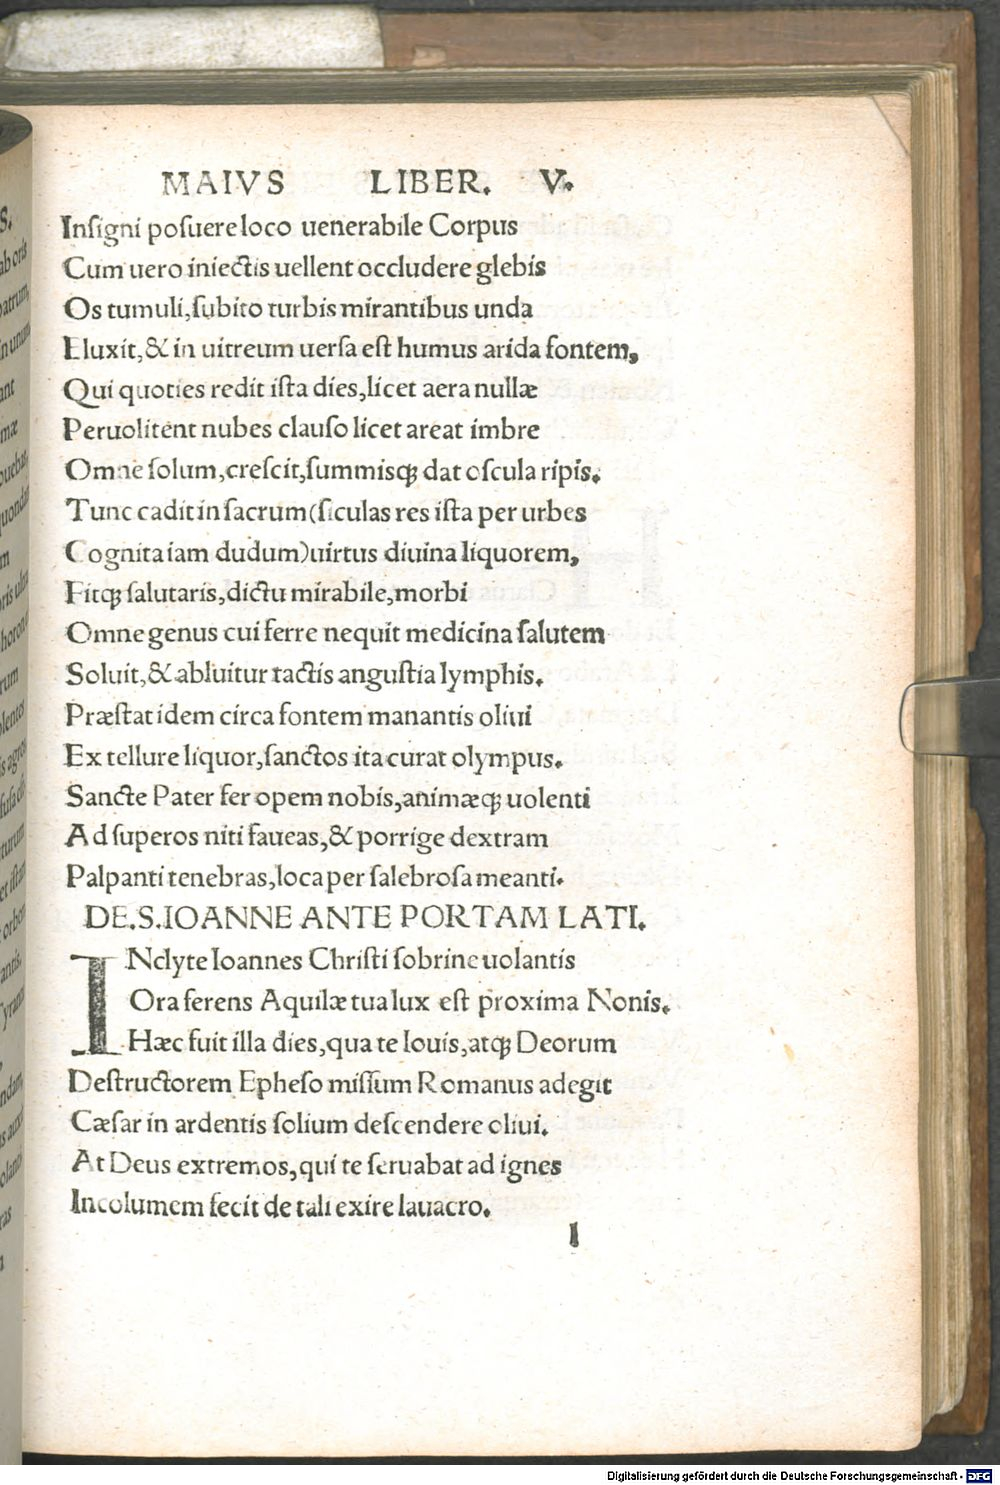 MAIVS LIBER. V.
Inſigni poſuere loco uenerabile Corpus
Cum uero iniectis uellent occludere glebis
Os tumuli,ſubito turbis mirantibus unda
Eluxit,& in uitreum uerſa eſt humus arida fontem,
Qui quoties redit iſta dies,licet aera nullæ
Peruolitent nubes clauſo licet areat imbre
Omne ſolum,creſcit,ſummisq; dat oſcula ripis.
Tunc cadit in ſacrum(ſiculas res iſta per urbes
Cognita iam dudum)uirtus diuina liquorem,
Fitq; ſalutaris,dictu mirabile,morbi
Omne genus cui ferre nequit medicina ſalutem
Soluit,& abluitur tactis anguſtia lymphis.
Præſtat idem circa fontem manantis oliui
Ex tellure liquor,ſanctos ita curat olympus.
Sancte Pater fer opem nobis,animæq; uolenti
Ad ſuperos niti faueas,& porrige dextram
Palpanti tenebras,loca per ſalebroſa meanti.
DE.S.IOANNE ANTE PORTAM LATI.
INclyte Ioannes Chriſti ſobrine uolantis
Ora ferens Aquilæ tua lux eſt proxima Nonis.
Hæc fuit illa dies,qua te Iouis,atq; Deorum
Deſtructorem Epheſo miſſum Romanus adegit
Cæſar in ardentis ſolium deſcendere oliui.
At Deus extremos,qui te ſeruabat ad ignes
Incolumem fecit de tali exire lauacro.
I
Digitalisierung gefördert durch die Deutsche Forschungsgemeinschaft - DFG